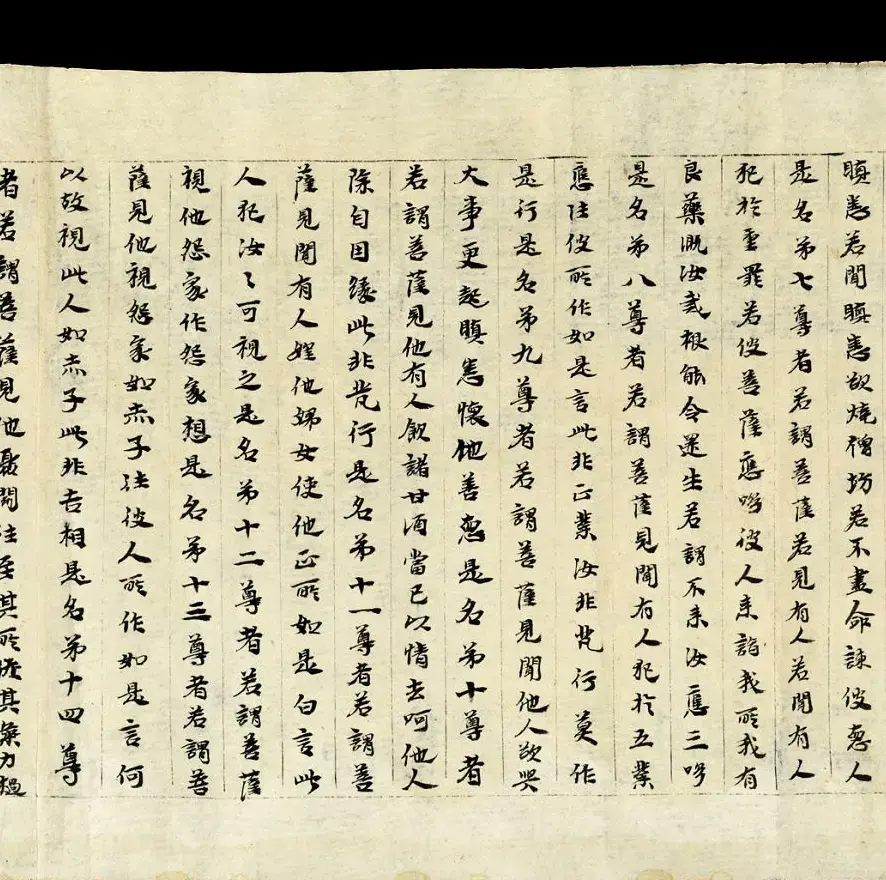 瞋恚若聞瞋恚欲燒僧坊若不盡命諫彼惡人
是名弟七尊者若謂善薩若見有人若聞有人
犯於重罪若彼善薩應喚彼人来詣我所我有
良藥溉汝戒根能令還生若謂不来汝應三喚
是名弟八尊者若謂善薩見聞有人犯於五業
應往彼所作如是言此非正業汝非梵行莫作
是行是名弟九尊者若謂善薩見聞他人欲興
大事更起瞋恚懷他善惡是名弟十尊者
若謂善薩見他有人飲諸甘酒當已以情去呵他人
除自因緣此非梵行是名弟十一尊者若謂善
薩見聞有人婬他婦女使他正所如是白言此
人犯汝〻可視之是名弟十二尊者若謂善薩
視他怨家作怨家想是名弟十三尊者若謂善
薩見他視怨家如赤子往彼人所作如是言何
以故視此人如赤子此非吉相是名弟十四尊
者若謂善薩見他聚鬪往至其所佐其氣力撾